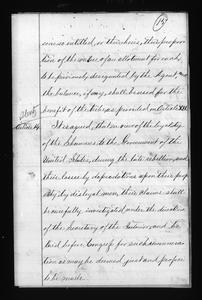 15
sons so entitled, or their heirs, their propor-
tion of the value of an allotment for each,
to be previously designated by the Agent, and
the balance, if any, shall be used for the
benefit of the tribe as provided in Article XIII.
Article 14.
It is agreed, that in view of the loyalty
of the Shawnees to the Government of the
United States, during the late rebellion, and
their losses by depredations upon their prop-
erty by disloyal men, their claims shall
be carefully investigated under the direction
of the Secretary of the Interior, and be
laid before Congress for such remunera-
tion as may be deemed just and proper
to be made.